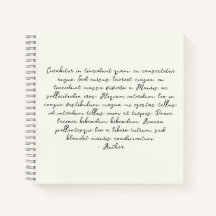 Curabitur in tincidunt quam, eu consectetur
augue. Sed cursus laoreet magna, eu
tincidunt massa viverra a. Mauris ac
sollicitudin eros. Aliquam interdum leo in
congue vestibulum, magna mi egestas tellus,
id interdum tellus enim at turpis. Donec
bibendum bibendum. Aenean
pellentesque leo a libero rutrum, sed
blandit mauris condimentum.
Author